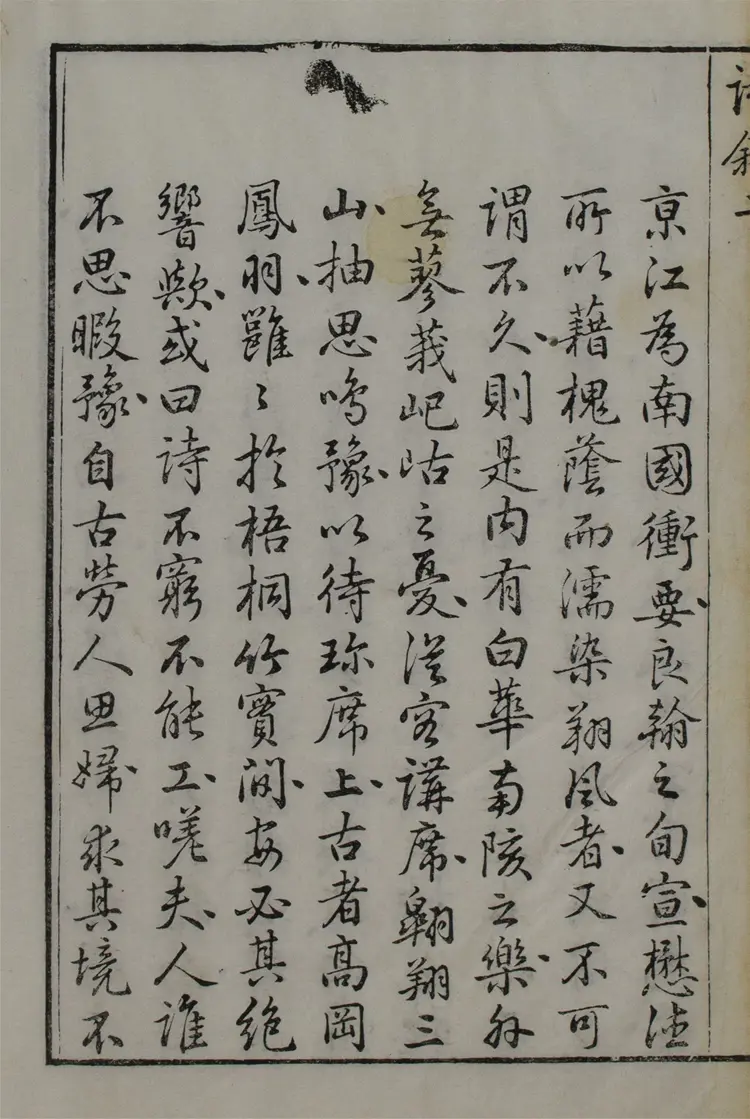 詩餘二
京江為南國衝要良翰之旬宣懋德
所以藉槐蔭而濡染翔風者又不可
謂不久則是內有白華南陔之樂外
無蓼莪屺岵之憂從容講席翱翔三
山抽思鳴豫以待珎席上古者高岡
鳳羽雝〻於梧桐竹實間安必其絕
響歟或曰詩不窮不能工嗟夫人誰
不思暇豫自古勞人思婦求其境不